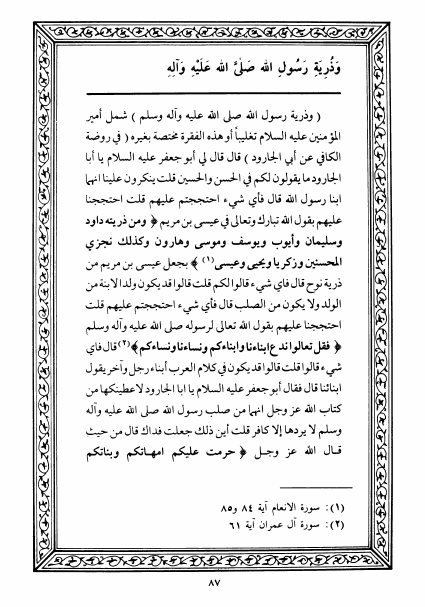 وَذُرِيَةِ رَسُولِ الله صَلَّى الله عَلَيْهِ وَآلِهِ
( وذرية رسول الله صلى الله عليه وآله وسلم ) شمل أمير
المؤمنين عليه السلام تغليباً أو هذه الفقرة مختصة بغيره ( في روضة
الكافي عن أبي الجارود ) قال قال لي أبو جعفر عليه السلام يا أبا
الجارود ما يقولون لكم في الحسن والحسين قلت ينكرون علينا انهما
ابنا رسول الله قال فأي شيء احتججتم عليهم قلت احتججنا
عليهم بقول الله تبارك وتعالى في عيسى بن مريم ﴿ ومن ذريته داود
وسليمان وأيوب ويوسف وموسى وهارون وكذلك نجزي
المحسنين وزكريا ويحيى وعيسى(١) ﴾ يجعل عيسى بن مريم من
ذرية نوح قال فاي شيء قالوا لكم قلت قالوا قد يكون ولد الابنة من
الولد ولا يكون من الصلب قال فأي شيء احتججتم عليهم قلت
احتججنا عليهم بقول الله تعالى لرسوله صلى الله عليه وآله وسلم
﴿ فقل تعالوا ندع ابناءنا وابناءكم ونساءنا ونساءكم ﴾(٢) قال فاي
شيء قالوا قلت قالوا قد يكون في كلام العرب أبناء رجل وآخر يقول
ابنائنا قال فقال أبو جعفر عليه السلام يا ابا الجارود لاعطينكها من
كتاب الله عز وجل انهما من صلب رسول الله صلى الله عليه وآله
وسلم لا يردها إلا كافر قلت أين ذلك جعلت فداك قال من حيث
قال الله عز وجل ﴿ حرمت عليكم امهاتكم وبناتكم
(١): سورة الانعام آية ٨٤ و٨٥
(٢): سورة آل عمران آية ٦١
٨٧